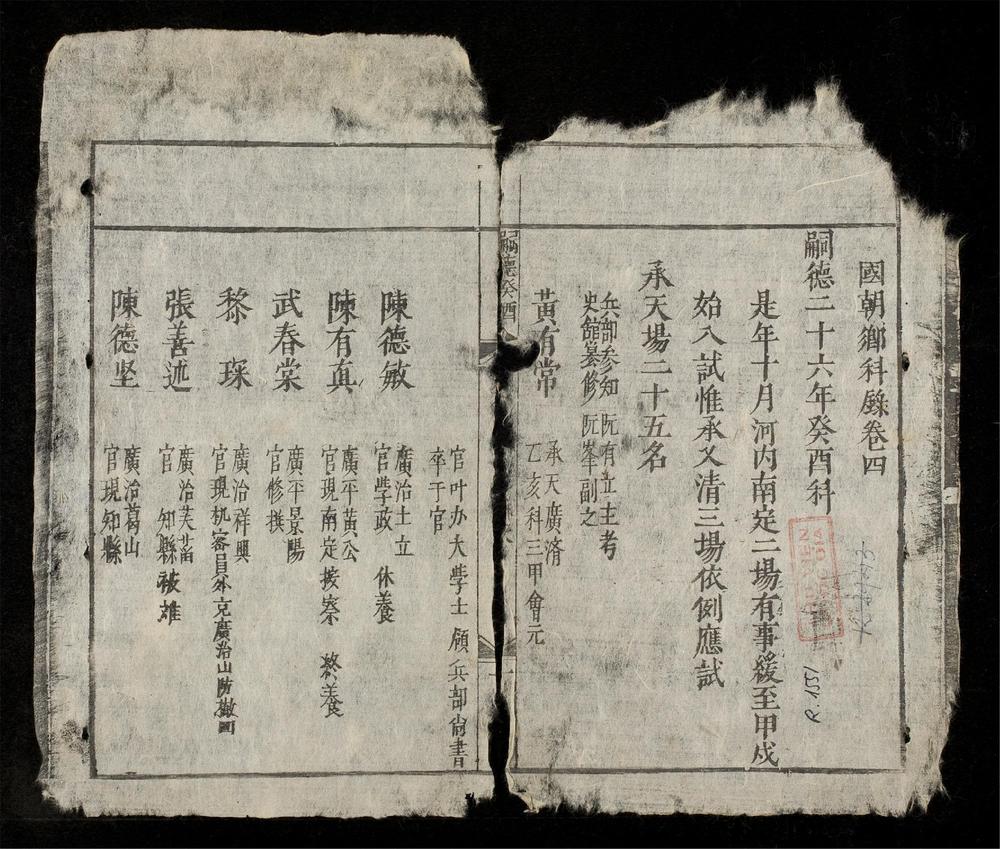 國朝鄉科錄卷四
嗣德二十六年癸酉科
是年十月河內南定二場有事緩至甲戌
始入試惟承乂清三場依例應試
承天場二十五名
兵部參知阮有立主考
史館纂修阮峯副之
黃有常
承天廣濟
乙亥科三甲會元
嗣德癸酉
官叶办大學士領兵部尙書
卒于官
陳德敏
廣治土立
官學政 休養
陳有真
廣平黃公
官現南定按察 終養
武春棠
廣平景陽
官修撰
黎琛
廣治祥興
官現机密員外充廣治山防
張善述
廣治芙蕾
官知縣被雄
陳德坚
廣治葛山
官現知縣
R.1551